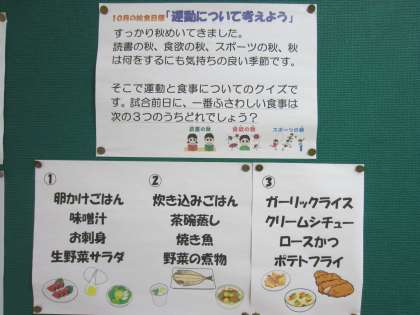 10月の給食目標「運動について考えよう」
すっかり秋めいてきました。
読書の秋、食欲の秋、スポーツの秋、秋
は何をするにも気持ちの良い季節です。
そこで運動と食事についてのクイズで
す。試合前日に、一番ふさわしい食事は
次の3つのうちどれでしょう？
読書の秋 食欲の秋 スポーツの秋
①
卵かけごはん
味噌汁
お刺身
生野菜サラダ
②
炊き込みごはん
茶碗蒸し
焼き魚
野菜の煮物
③
ガーリックライス
クリームシチュー
ロースかつ
ポテトフライ